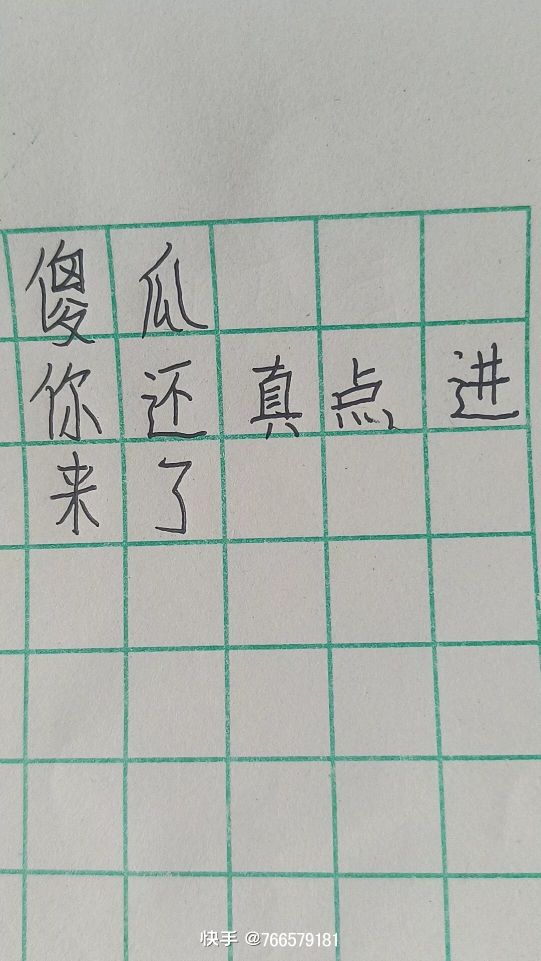 傻瓜
你还真点进
来了
快手 @766579181